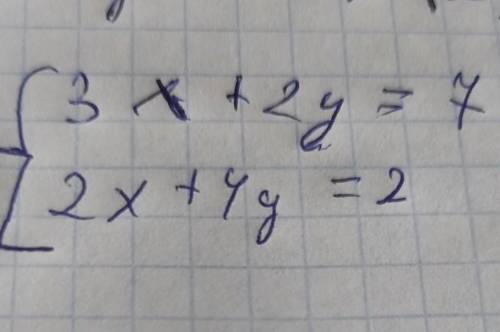 3x + 2y = 7
2x + 4y = 2